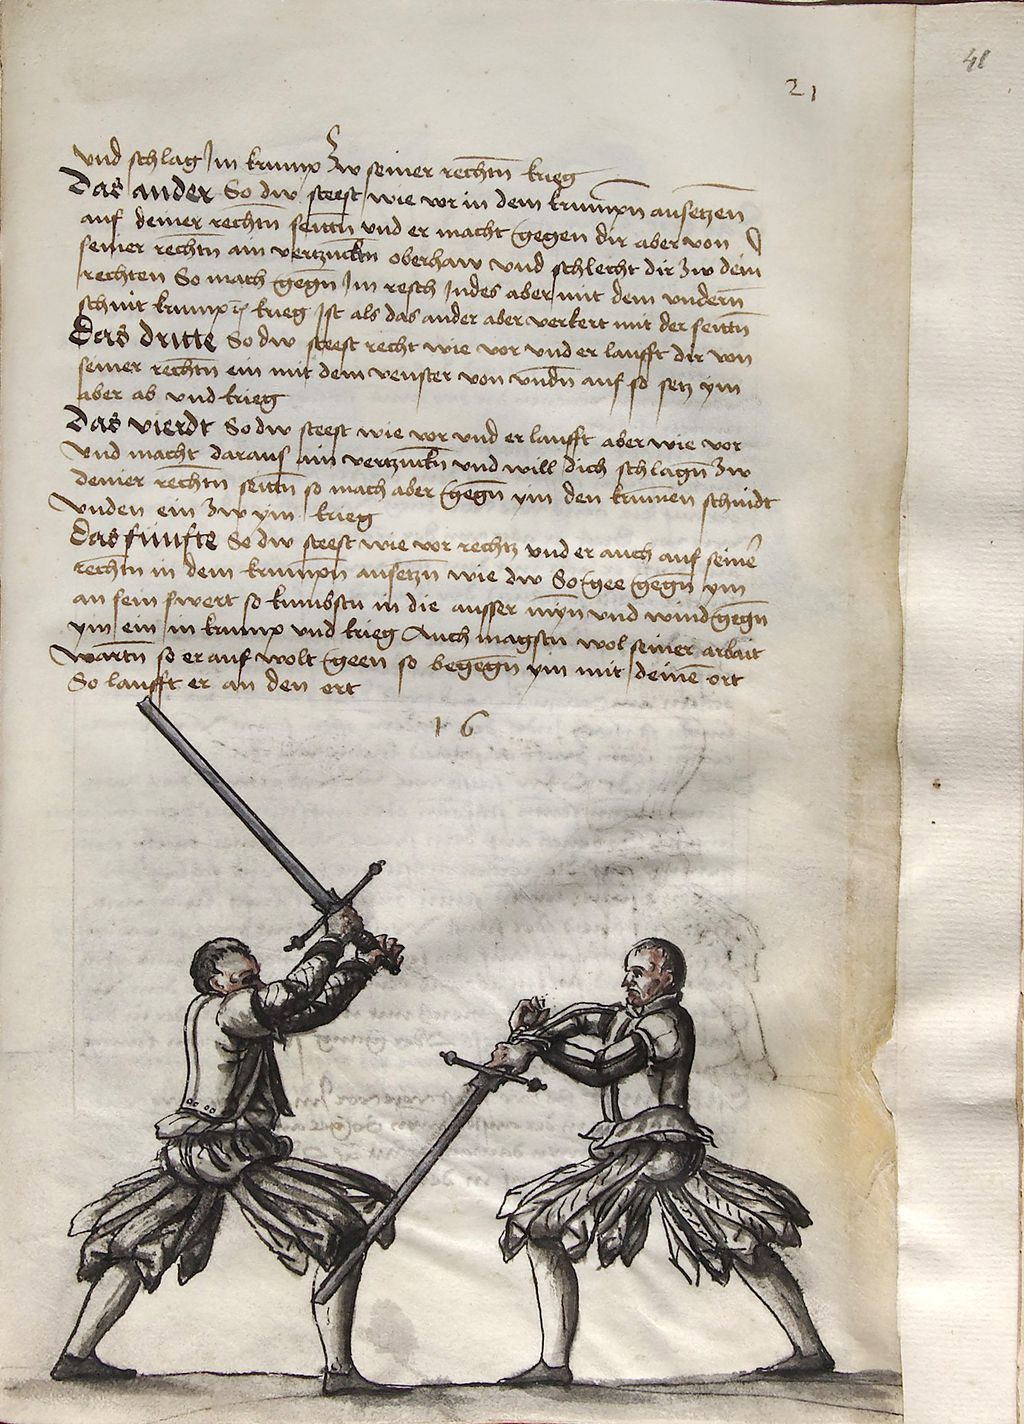 41
21
und schlag Im krump zw seiner rechtn krieg
Das ander So dw steest wie vor in dem krumpn ansetzen
auf deiner rechtn seittn und er macht gegen dir aber von
seiner rechtn ain vertzuckn oberhaw und schlecht dir zw dein
rechten So mach gegn Im resch Indes aber mit dem undern
schnit krump krieg Ist als das ander aber verkert mit der seittn
Das dritte So dw steest recht wie vor und er laufft dir von
seiner rechtn ein mit dem venster von undn auf so setz ym
aber ab und krieg
Das vierdt So dw steest wie vor und er laufft aber wie vor
und macht darauf ain vertzuckn und will dich schlagn zw
deiner rechtn seittn so mach aber gegn ym den krumen schnidt
unden ein zw ym krieg
Das funfte So dw steest wie vor rechtz und er auch auf seine
rechtn in dem krumpn ansetzn wie dw So gee gegn ym
an sein swert so kumbstu in die ausser myn und wind gegn
ym ein in krump und krieg Auch magstu wol seiner arbait
wartn so er auf wolt geen so begegn ym mit deine ort
So laufft er an den ort
16